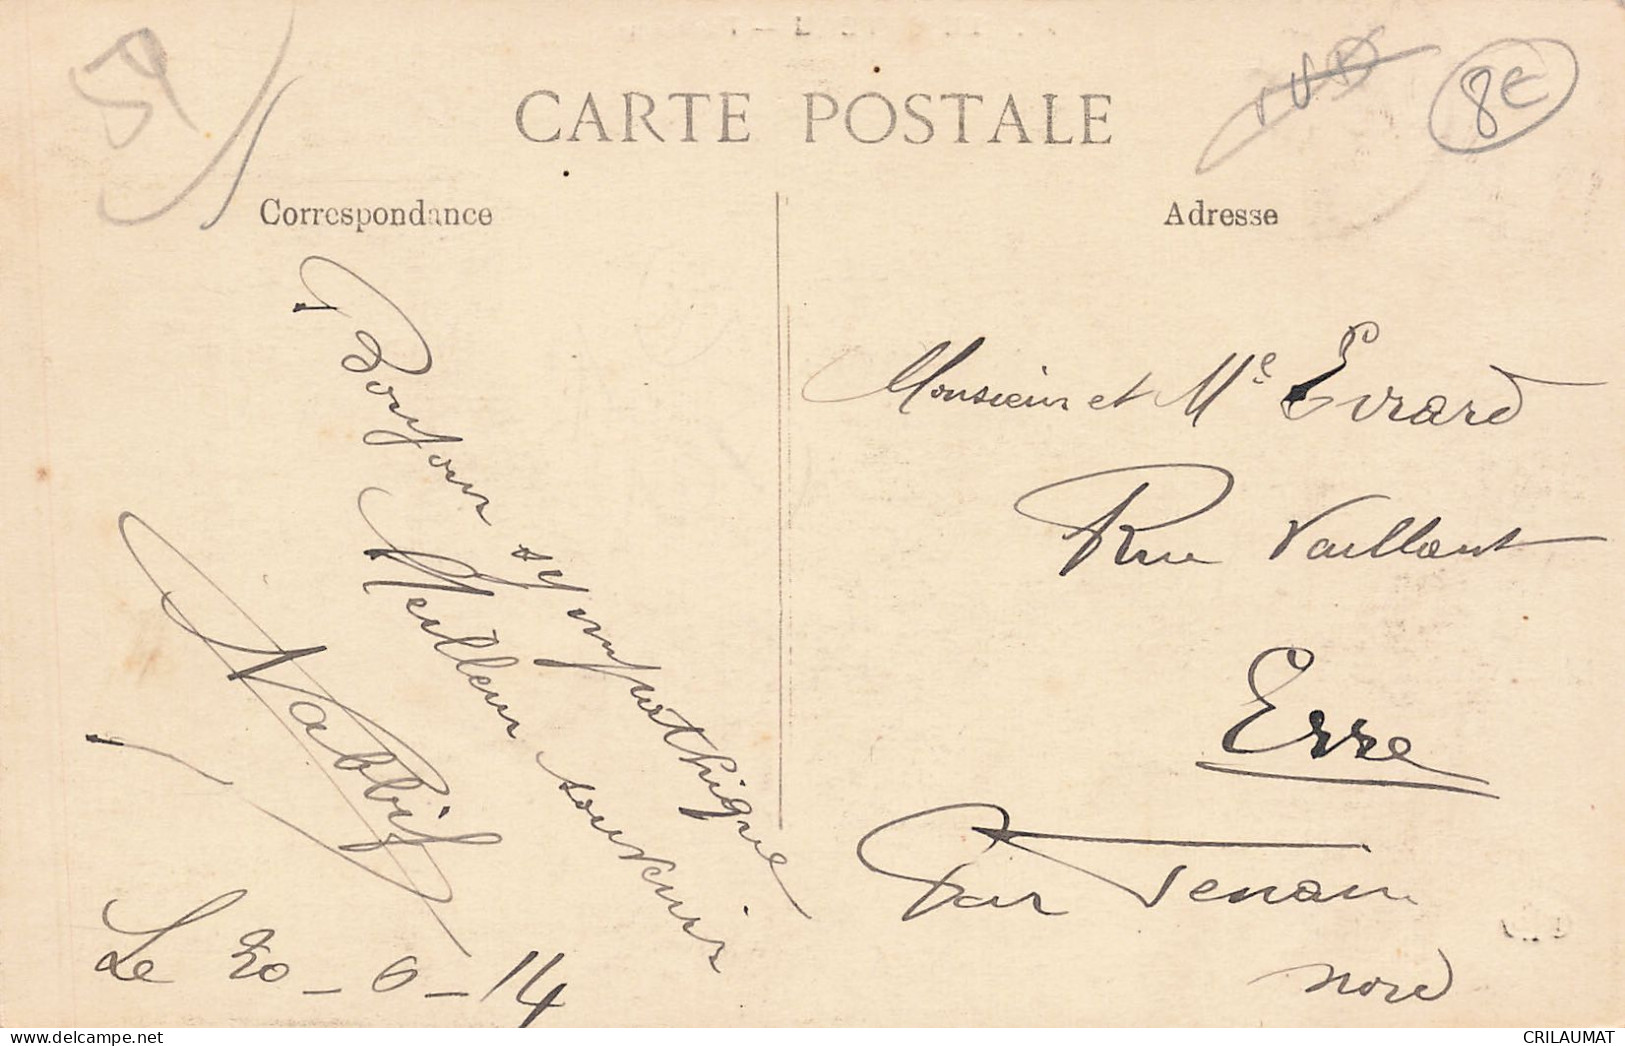 59
8€
CARTE POSTALE
Correspondance
Adresse
Bonjour sympathique
Meilleur souvenir
Le 20-6-14
Monsieur et Me Evrard
Rue Vaillant
Erre
Par Fenain
Nord
CRILAUMAT